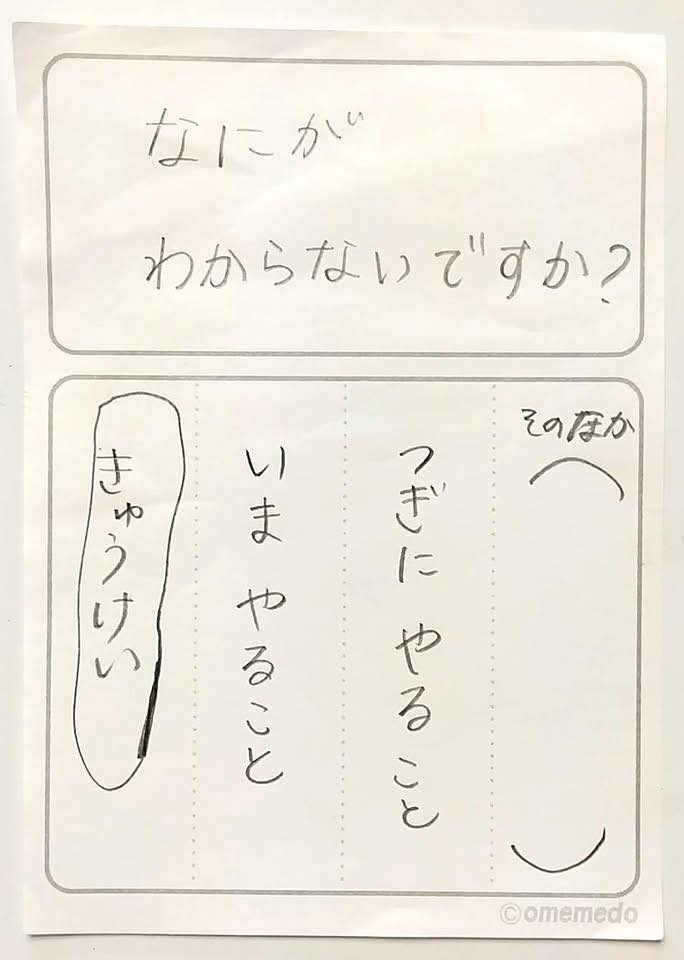 なにが
わからないですか?
そのなか
( )
つぎに やること
いま やること
きゅうけい
©omemedo